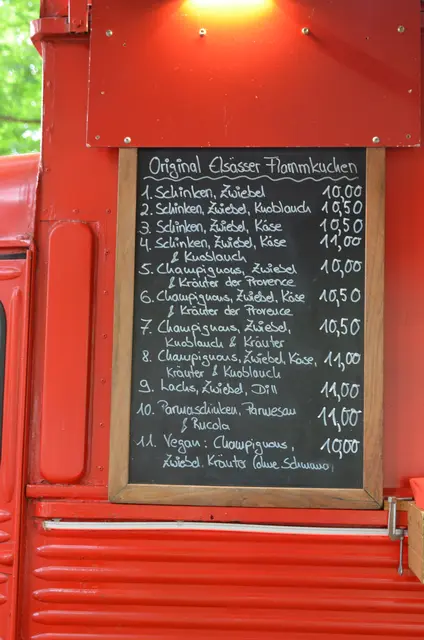 Original Elsässer Flammkuchen
1. Schinken, Zwiebel 10,00
2. Schinken, Zwiebel, Knoblauch 10,50
3. Schinken, Zwiebel, Käse 10,50
4. Schinken, Zwiebel, Käse 11,00
& Knoblauch
5. Champignons, Zwiebel 10,00
& Kräuter der Provence
6. Champignons, Zwiebel, Käse 10,50
& Kräuter der Provence
7. Champignons, Zwiebel, 10,50
Knoblauch & Kräuter
8. Champignons, Zwiebel, Käse, 11,00
Kräuter & Knoblauch
9. Lachs, Zwiebel, Dill 11,00
10. Parmaschinken, Parmesan 11,00
& Rucola
11. Vegan: Champignons, 10,00
Zwiebel, Kräuter (ohne Schmand)